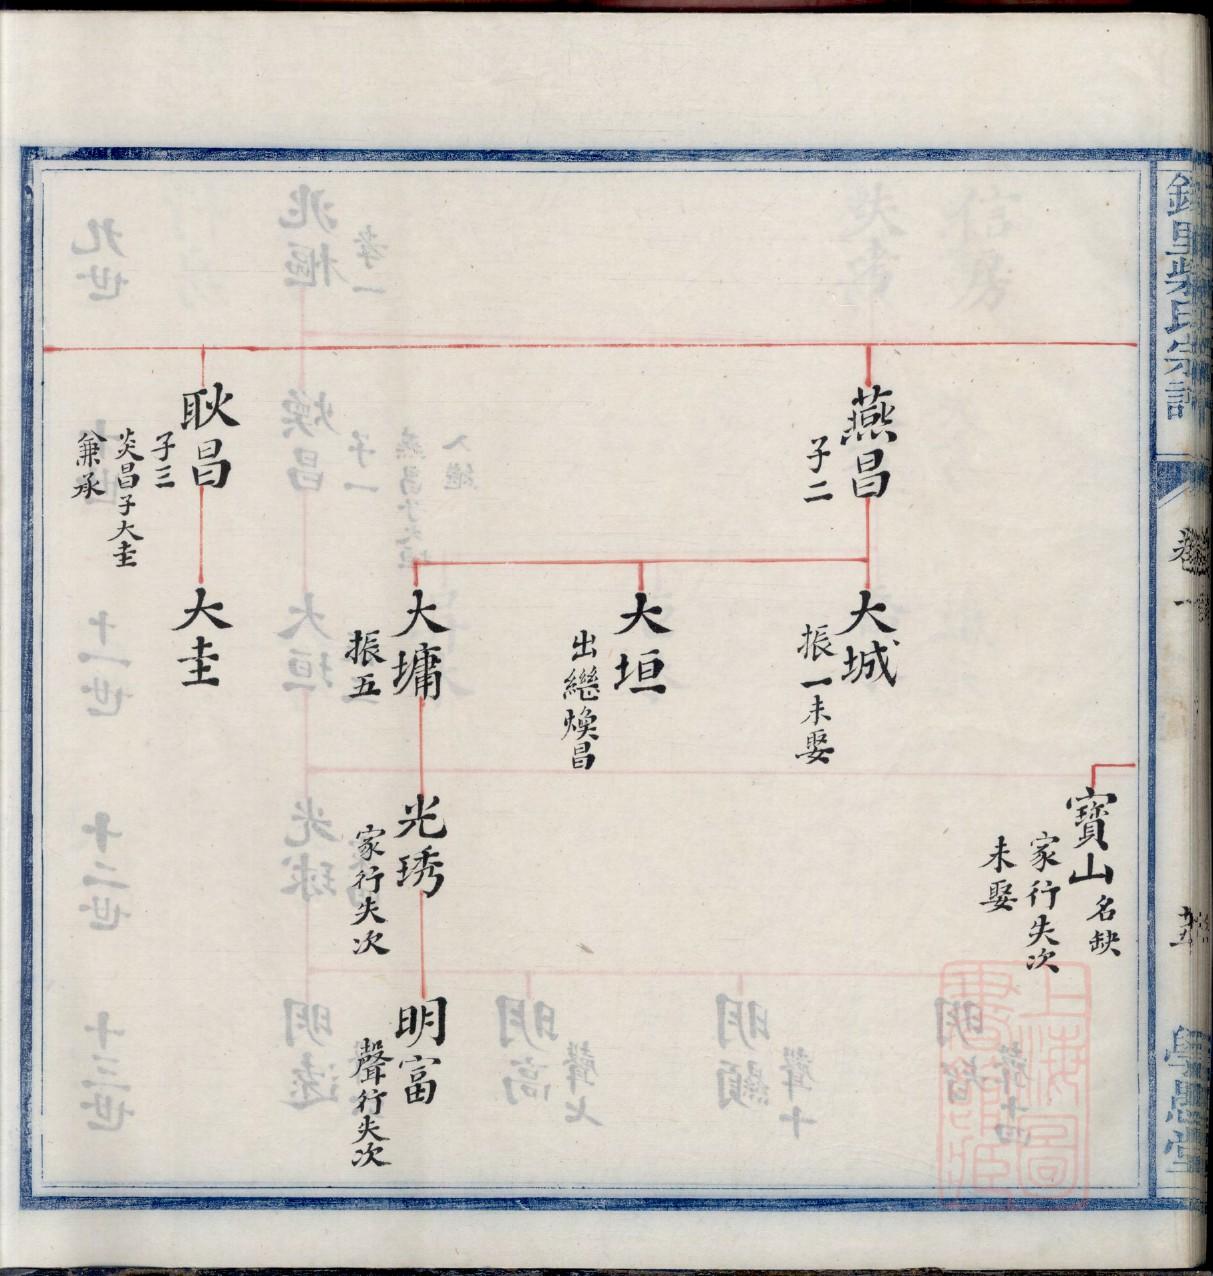 柴氏宗譜
卷一
學愚堂
燕昌
子二
耿昌
子三
炎昌子大圭
兼承
大城
振一未娶
大垣
出繼煥昌
大墉
振五
大圭
寶山名缺
家行失次
未娶
光琇
家行失次
明富
聲行失次
上海圖書館藏